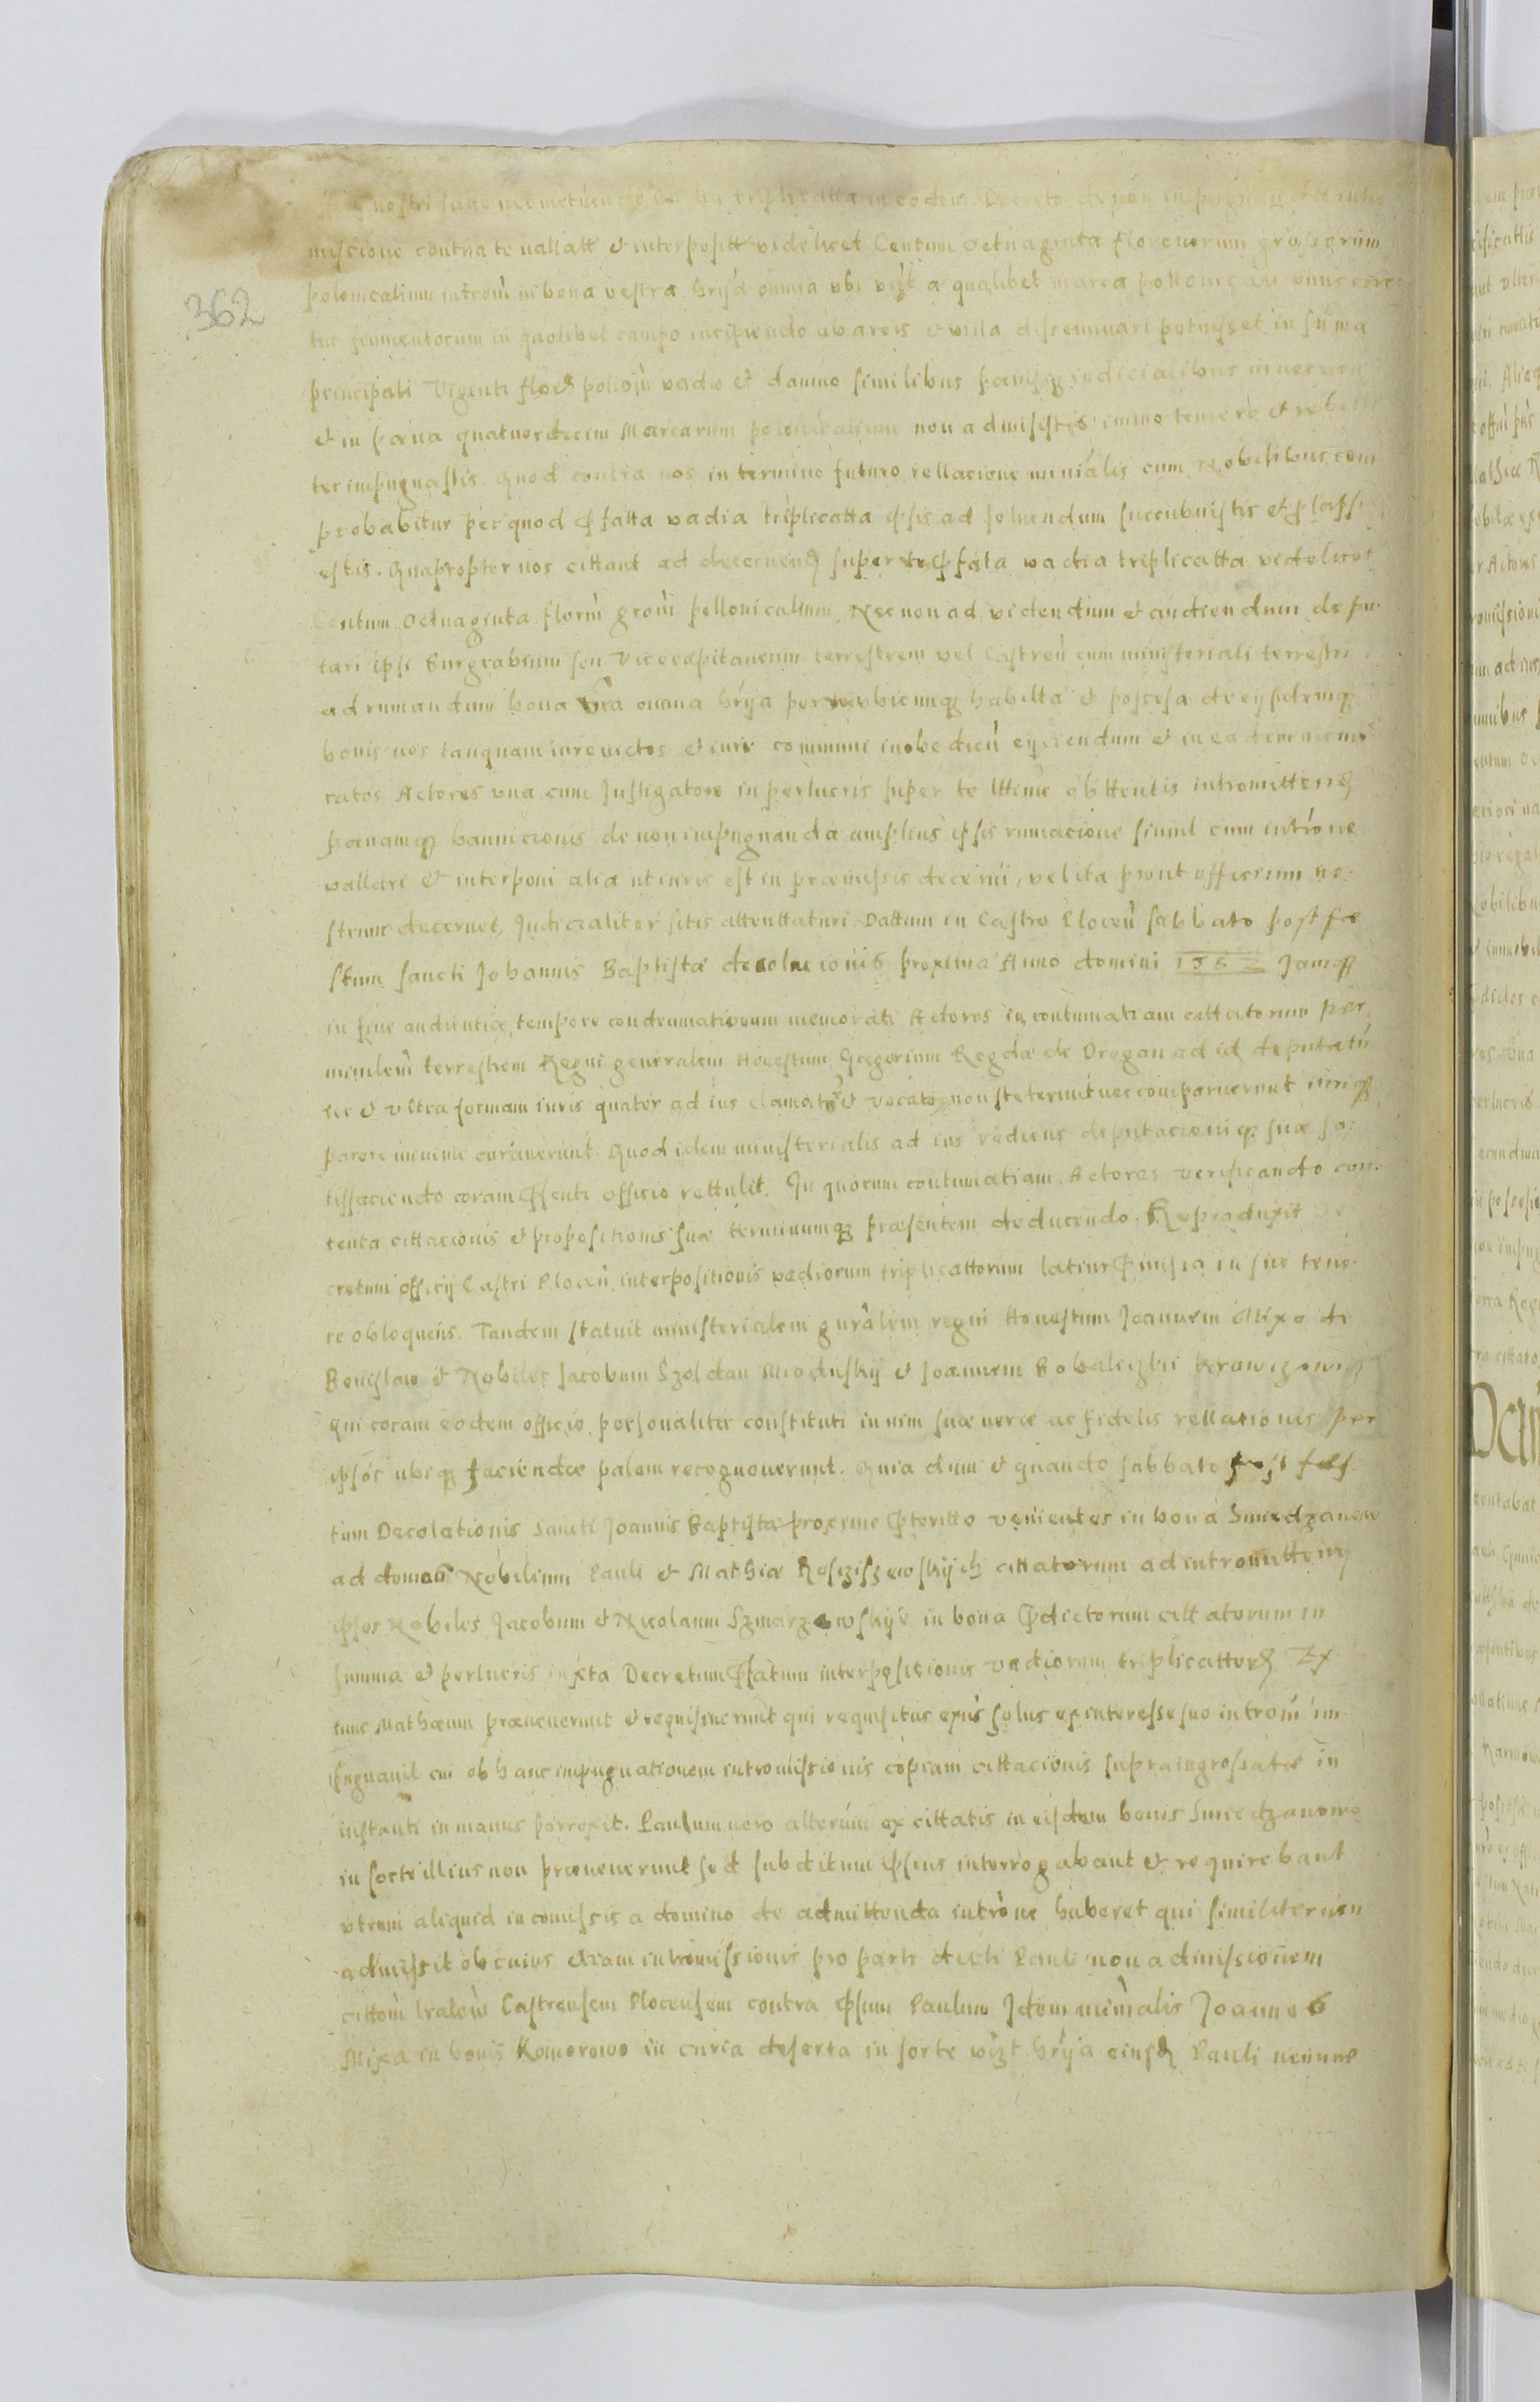 362
nostri triplicatta in eodem Decreto de non
miscione contra te vallatt et interpositt videlicet Centum octuaginta florenorum grossorum
polonicalium introm in bona vestra hrija omnia ubi vizt a qualibet marca pollonicali unus core
tus frumentorum in quolibet campo incipiendo ab areis et villa disseminari potuisset in summa
principali Viginti flor pollon vadio et damno similibus paenisq judicialibus
et in paena quatuordecim Marcarum polonicalium non admisistis immo temere et rebell
ter impugnastis quod contra vos in termino futuro rellacione minialis cum Nobilibus com
probabitur per quod pfatta vadia triplicatta ipsis ad solvendum succubuistis et plapsi
estis. Quapropter vos cittant ad decernend super te pfata vadia triplicatta videlicet
Centum Octuaginta florin grom pollonicalium, Nec non ad videndum et audiendum depu
tari ipsi Burgrabium seu Vicecapitaneum terrestrem vel Castren cum ministeriali terrestri
ad rumandum bona vra omnia hrija per vos ubicumq habitta et possesa de eijsdemq
bonis vos tanquam iure victos et iuri communi inobedien eijciendum et in eadem memo
ratos Actores una cum Instigatore in perlucris super te ittem obttentis intromittend
paenamq bannicionis de non impugnanda amplius ipsis rumacione simul cum introne
vallari et interponi alia ut iuris est in praemissis decerni, vel ita prout officium no
strum decernet, Judicialiter sitis attenttaturi Dattum in Castro Plocen sabbato post fe
stum sancti Johannis Baptistae decolacionis proxima Anno domini Jamq
in fine audientiae, tempore condemnationum memorati Actores in contumatiam cittatorum per
minlem terrestrem Regni generalem Honestum Gregorium Regda de Drogan ad id deputatu
ter et ultra formam iuris quater ad ius clamatos et vocatos non steterunt nec comparuerunt iuriq
parere minime curaverunt. Quod idem ministerialis ad ius rediens deputacioniq suae sa
tisfaciendo coram psenti officio rettulit. In quorum contumatiam Actores verificando con
tenta cittacionis et propositionis suae terminumq praesentem deducendo Reproduxit De
cretum officij Castri Plocen interpositionis vadiorum triplicattorum latius pmissa in suo teno
re obloquens. Tandem statuit ministerialem gnralem regni Honestum Joannem Mixa de
Bonislaw et Nobiles Jacobum Szoldan Miodusky et Joannem
qui coram eodem officio personaliter constituti in vim suae verae ac fidelis rellationis per
ipsos ubiq faciendae palam recognoverunt. Quia dum et quando sabbato post fes
tum Decolationis Sancti Joannis Baptistae proxime pteritto venientes in bona Smiedzanowo
ad domum Nobilium Pauli et Mathiae Rosziszewskijch cittatorum ad intromittend
ipsos Nobiles Jacobum et Nicolaum Szmarzewskije in bona pdictorum cittatorum in
summa et perlucris iuxta Decretum pfatum interpositionis vadiorum triplicattor Ex
tunc Mathaeum praevenerunt et requisiverunt qui requisitus exns solus ex interesse suo introm im
pugnavit cui ob hanc impugnationem intromissionis copiam cittacionis supra ingrossatae in
instanti in manus porrexit. Paulum vero alterum ex cittatis in eisdem bonis Smiedzanowo
in sorte illius non praevenerunt sed subditum ipsius interrogabant et requirebant
utrum aliquid in comissis a domino de admittenda introne haberet qui similiter non
admissit ob cuius etiam intromissionis pro parte dicti Pauli non admissionem
cittom lralem Castrensem Plocensem contra ipsum Paulum Idem minalis Joannes
Mixa in bonis Komorowo in curia deserta in sorte vizt hrija eiusd Pauli